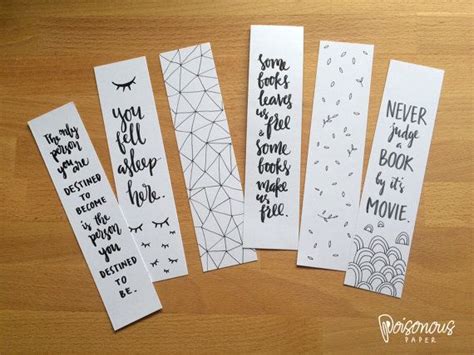 The only
person
you are
DESTINED TO
BECOME
is the
person
you
DESTINED
TO
BE.
you
fell
asleep
here.
some
books
leaves
us
free
& some
books
make
us
free.
NEVER
judge
a
BOOK
by it's
MOVIE.
Poisonous
PAPER